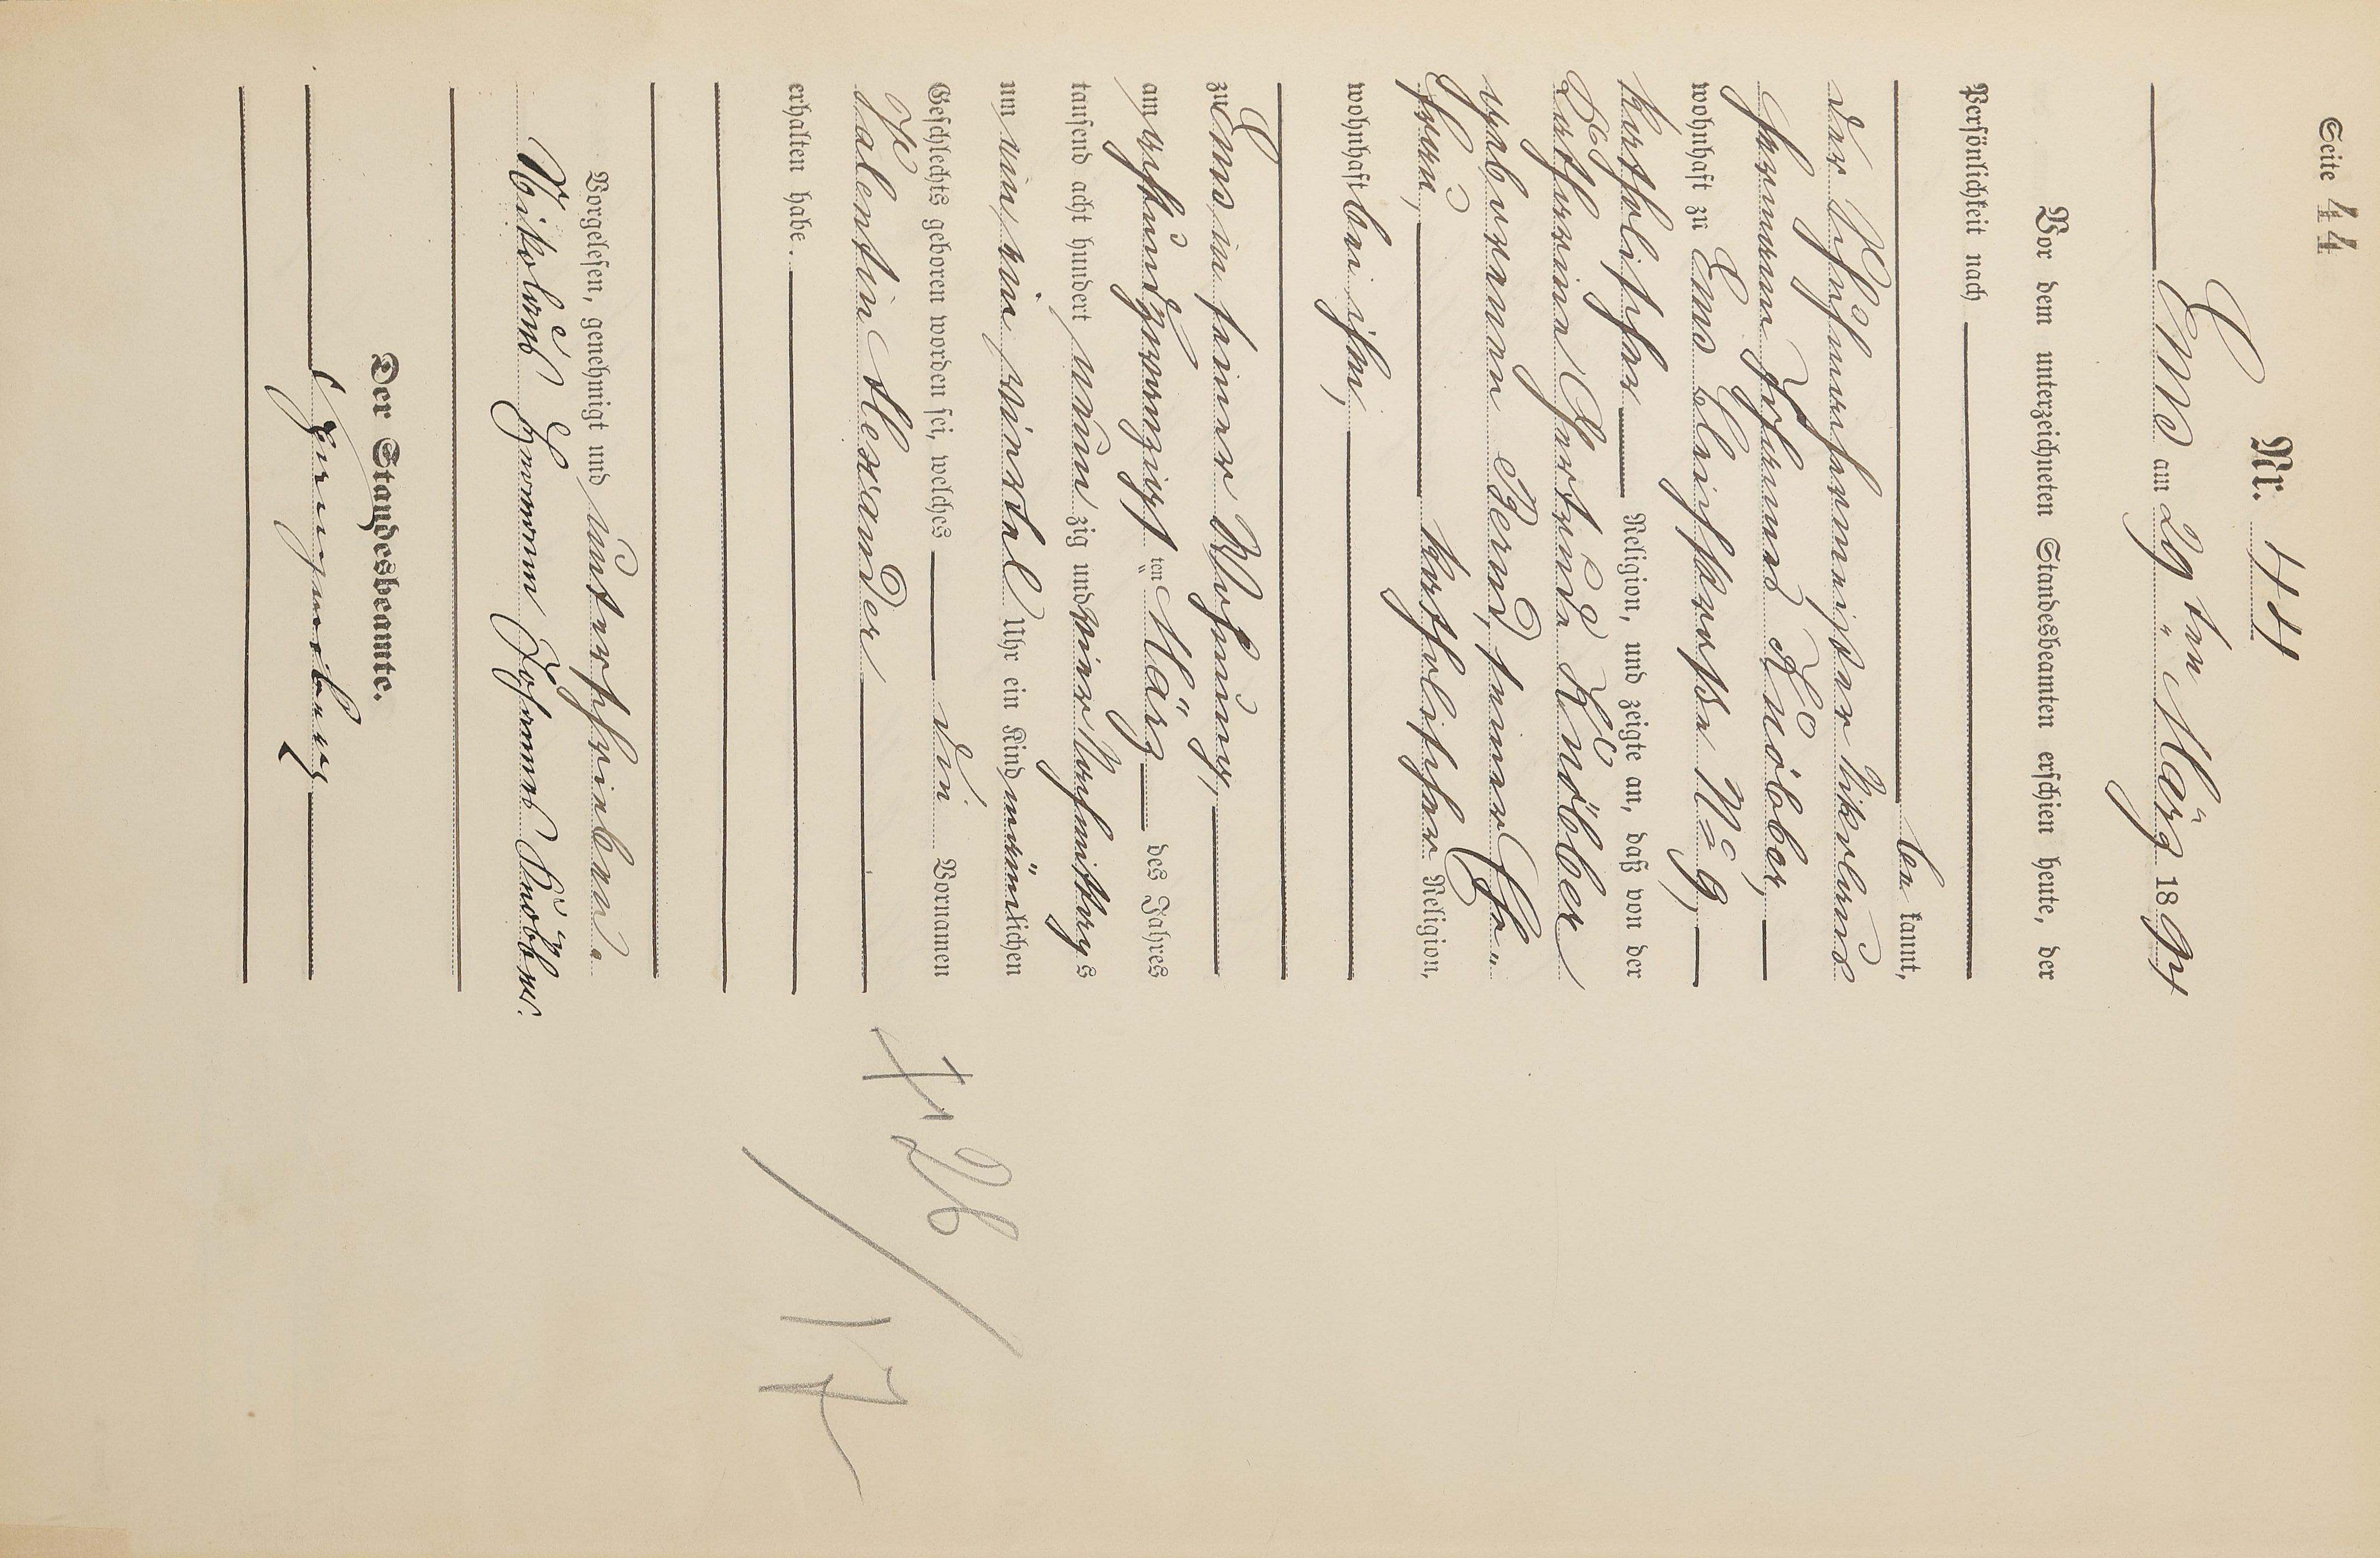 Seite 44
Nr. 44
Ems am 29 ten März 1894
Vor dem unterzeichneten Standesbeamten erschien heute, der
Persönlichkeit nach
be kannt,
der Schuhmachermeister Nikolaus
Hermann Johannes Knöbber,
wohnhaft zu Ems Bleichstraße No 9,
katholischer Religion, und zeigte an, daß von der
Katharina Gertrude Knöbber
geborenen Bernd, seiner Ehe-
frau,
katholischer Religion,
wohnhaft bei ihm,
zu Ems in seiner Wohnung,
am achtundzwanzigsten März des Jahres
tausend acht hundert neun zig und vier Vormittags
um ein ein viertel Uhr ein Kind männlichen
Geschlechts geboren worden sei, welches die Vornamen
Valentin Alexander
erhalten habe.
Vorgelesen, genehmigt und unterschrieben.
Nikolaus Hermann Johannes Knöbber.
Der Standesbeamte.
+ 26/17